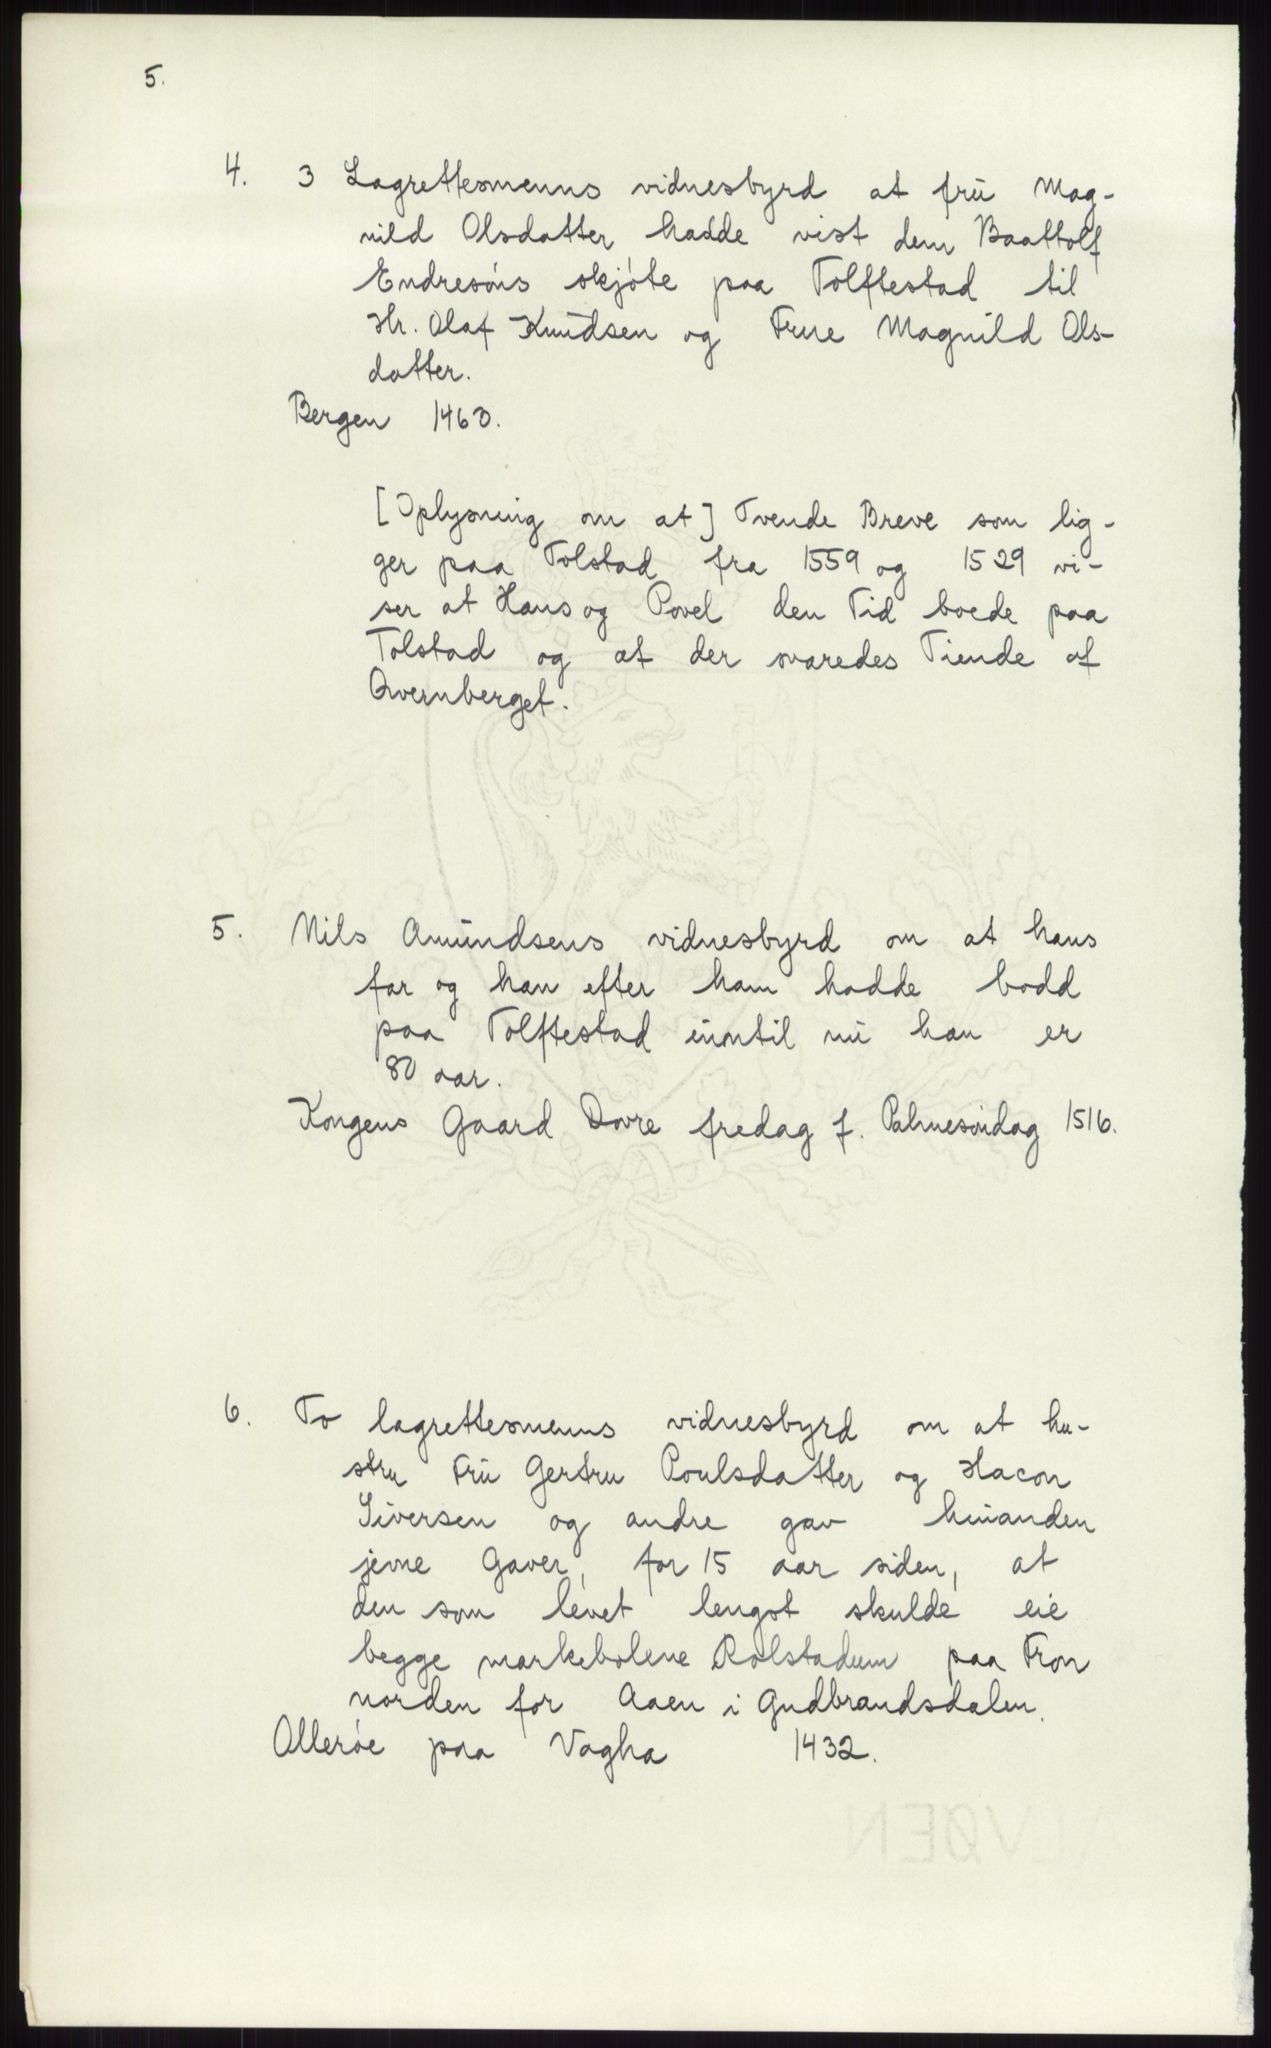 5.
4. 3 Lagrettesmenns vidnesbyrd at frü Mag-
nild Olsdatter hadde vist dem Baattolf
Endresøns skjøte paa Tolftestad til
Hr. Olaf Knudsen og Frue Magnild Ols-
datter.
Bergen 1463.
[Oplysning om at] Tvende Breve som lig-
ger paa Tolstad fra 1559 og 1529 vi-
ser at Hans og Povel den Tid boede paa
Tolstad og at der svaredes Tiende af
Qvernberget.
5. Nils Amundsens vidnesbyrd om at hans
far og han efter ham hadde bodd
paa Tolftestad inntil nü han er
80 aar.
Kongens Gaard Dovre fredag f. Palmesøndag 1516.
6. To lagrettesmenns vidnesbyrd om at hu-
stru Frü Gertru Poulsdatter og Hacon
Siversen og andre gav hinanden
jevne Gaver, for 15 aar siden, at
den som levet lengst skulde eie
begge markebolene Rolstadum paa Fron
norden for Aaen i Gudbrandsdalen.
Ollerøe paa Vagha 1432.
ALVØEN